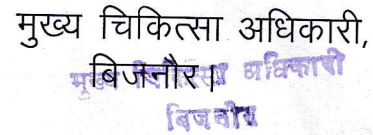 मुख्य चिकित्सा अधिकारी,
बिजनौर।
मुख्य चिकित्सा अधिकारी
बिजनौर